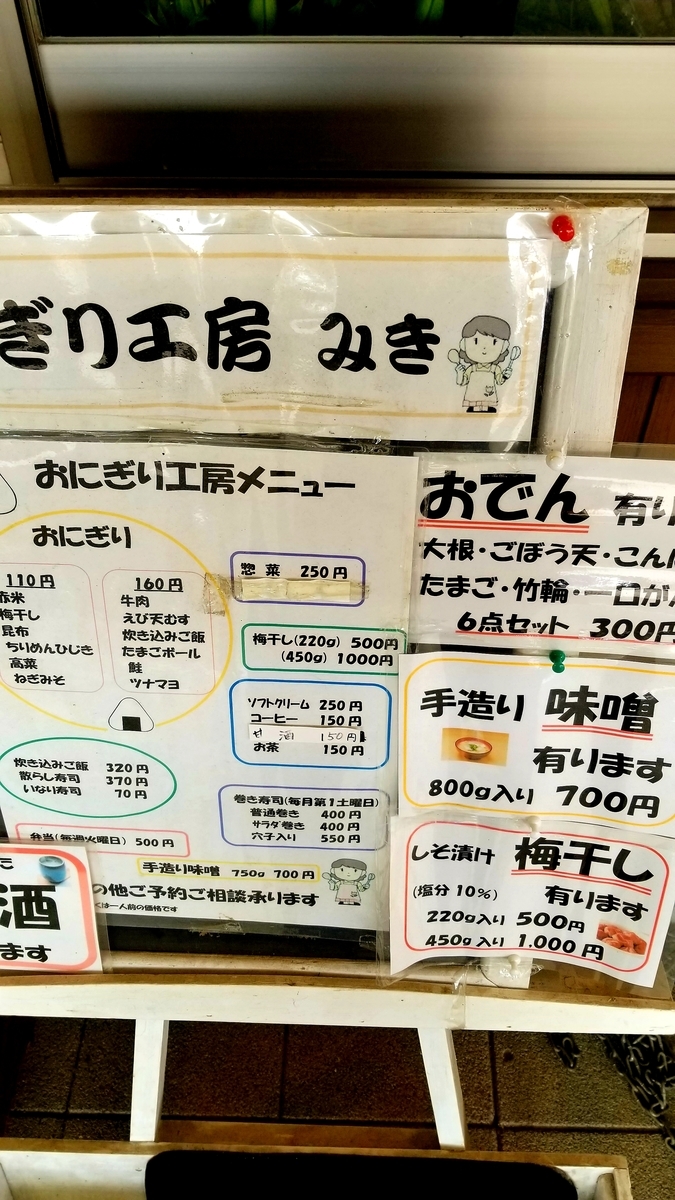 ぎり工房 みき
おにぎり工房メニュー
おにぎり
110円
赤米
梅干し
昆布
ちりめんひじき
高菜
ねぎみそ
160円
牛肉
えび天むす
炊き込みご飯
たまごボール
鮭
ツナマヨ
惣菜 250円
梅干し(220g) 500円
(450g) 1000円
ソフトクリーム 250円
コーヒー 150円
酒 150円
お茶 150円
炊き込みご飯 320円
散らし寿司 370円
いなり寿司 70円
巻き寿司(毎月第1土曜日)
普通巻き 400円
サラダ巻き 400円
穴子入り 550円
弁当(毎週火曜日) 500円
手造り味噌 750g 700円
の他ご予約ご相談承ります
くは一人前の価格です
酒
ます
おでん 有り
大根・ごぼう天・こん
たまご・竹輪・一口が
6点セット 300円
手造り 味噌
有ります
800g入り 700円
しそ漬け 梅干し
(塩分10%) 有ります
220g入り 500円
450g入り 1.000円